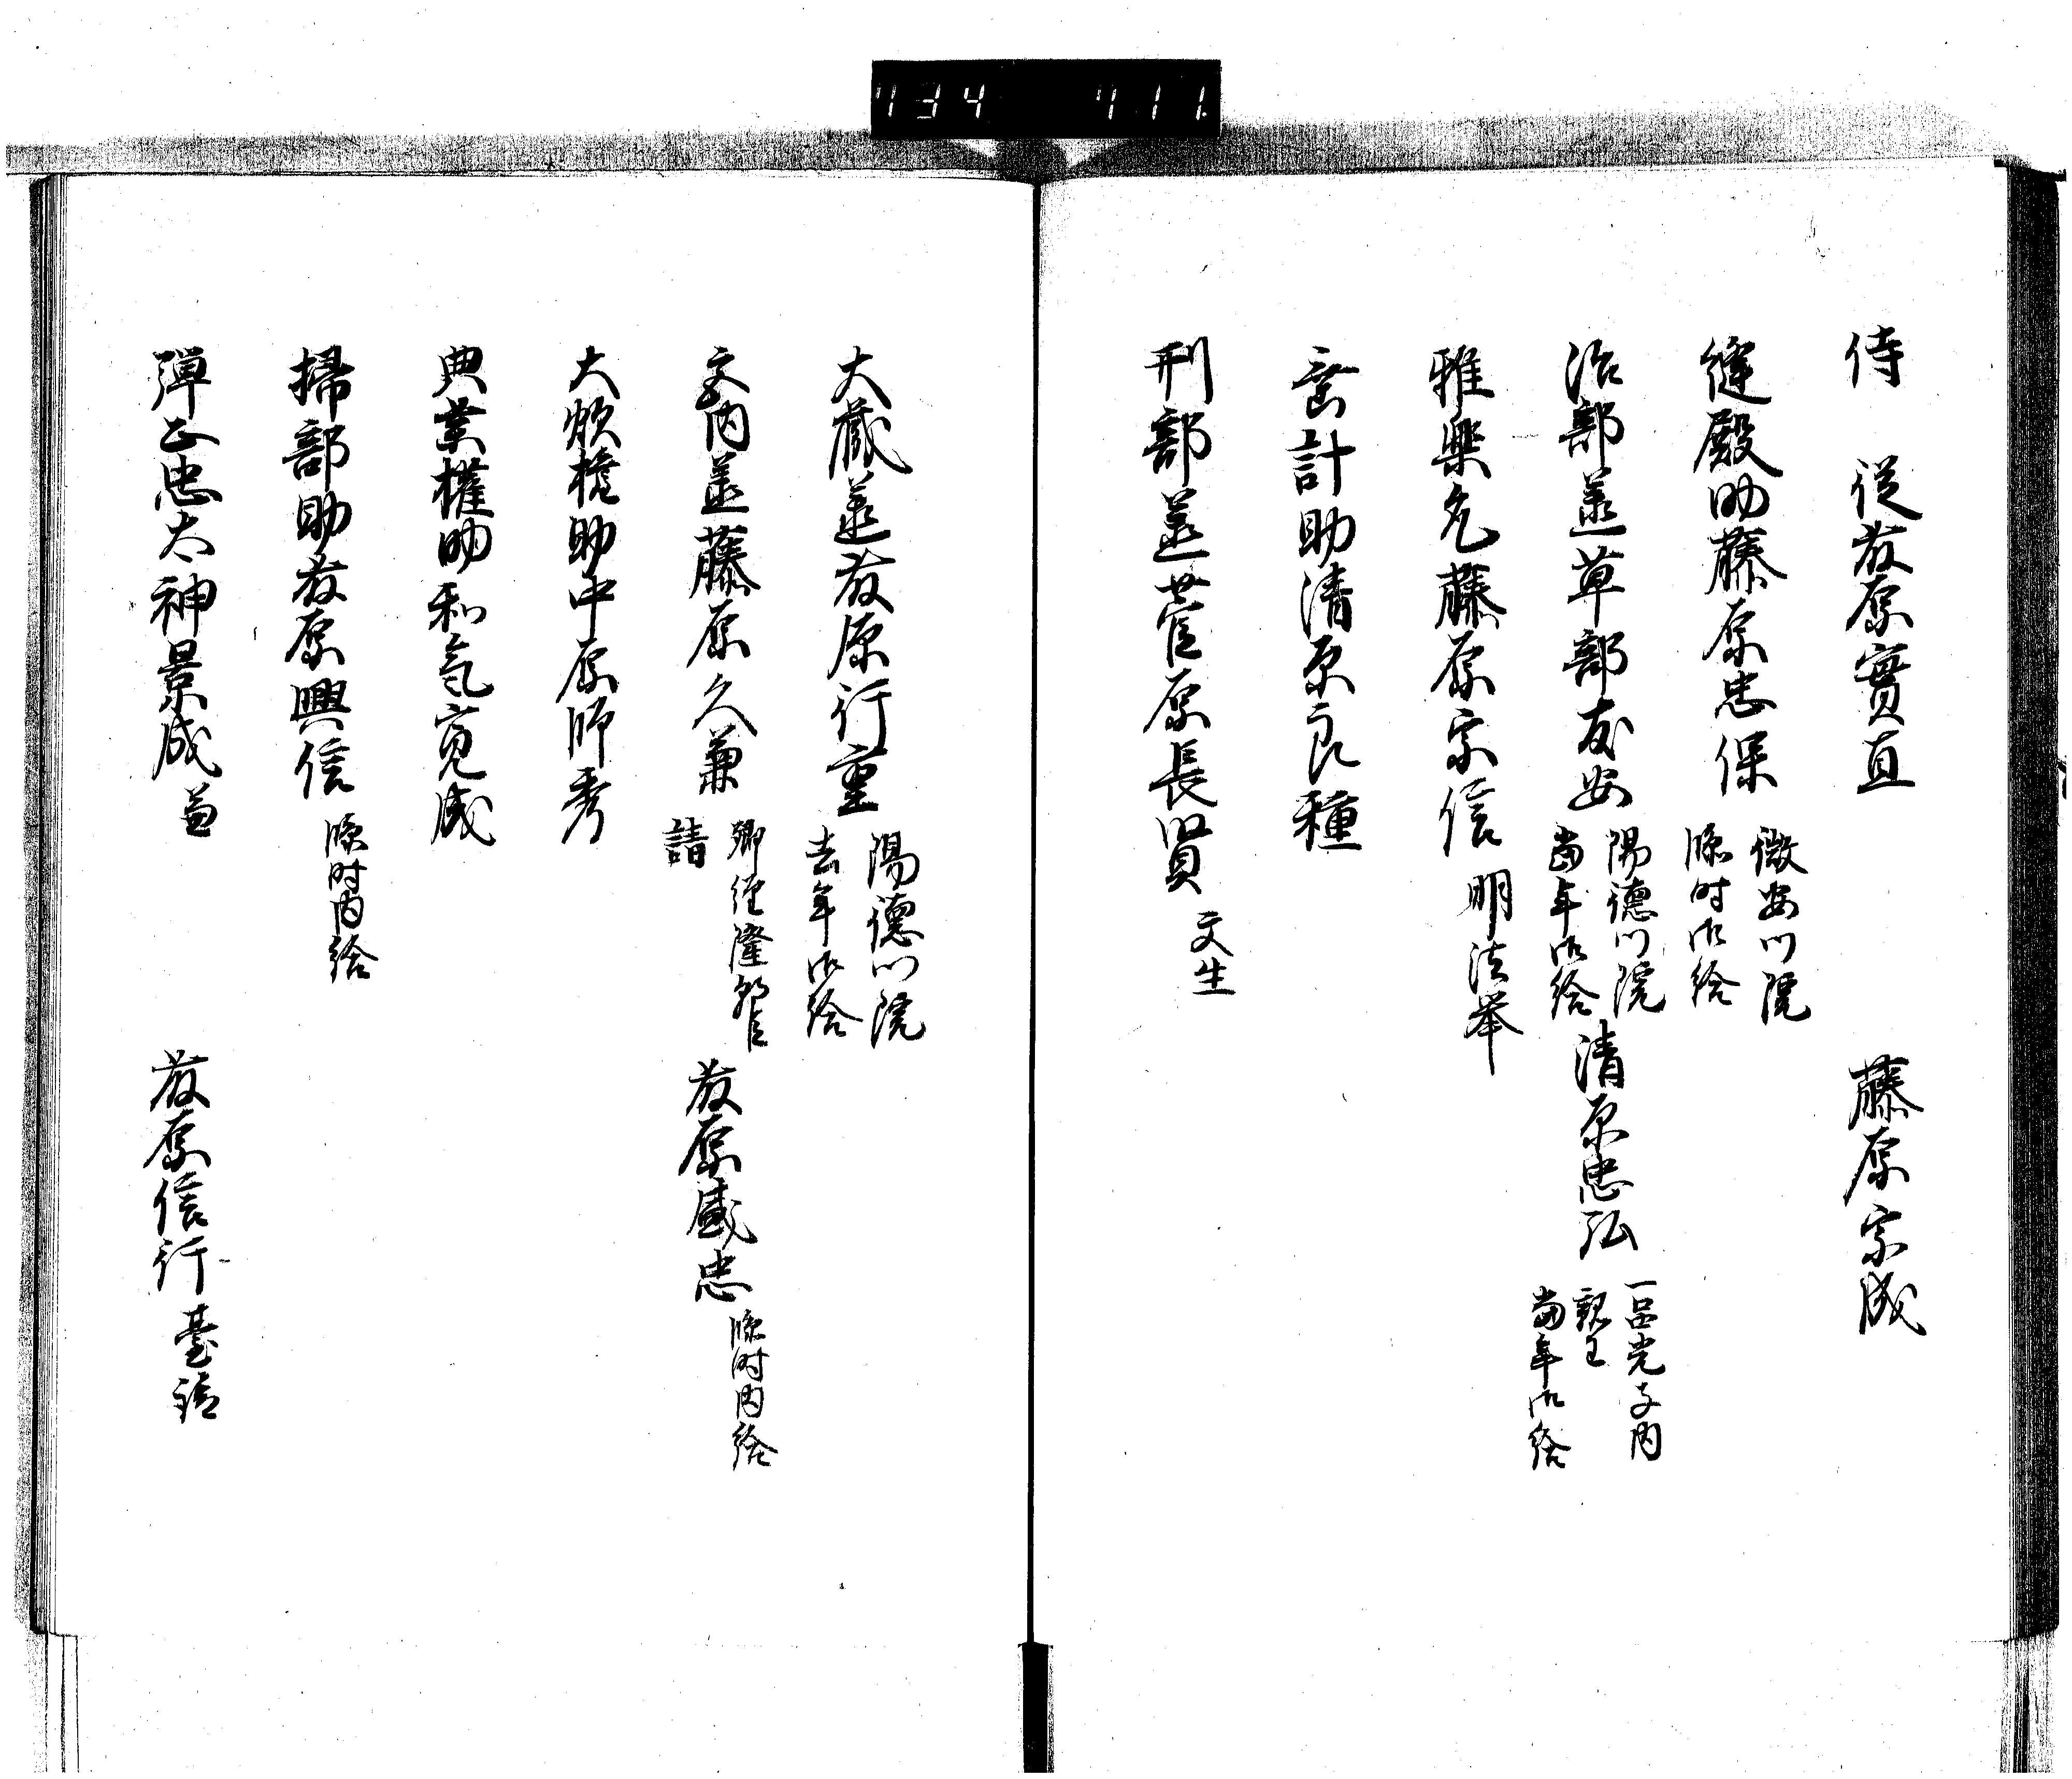 434 411
侍従藤原實直 藤原宗成
縫殿助藤原忠保 徽安門院
臨時御給
治部丞草部友安 陽德門院
當年御給 清原忠弘 一品光子内
親王
當年御給
雅樂允藤原宗信 明法挙
主計助清原良種
刑部丞菅原長賢 文生
大蔵丞藤原行重 陽德門院
去年御給
宮内丞藤原久兼 卿經隆
請 藤原盛忠 臨時内給
大炊権助中原師秀
典薬権助和氣寛成
掃部助藤原興信 臨時内給
弾正忠大神景成 兼 藤原信行 臺請